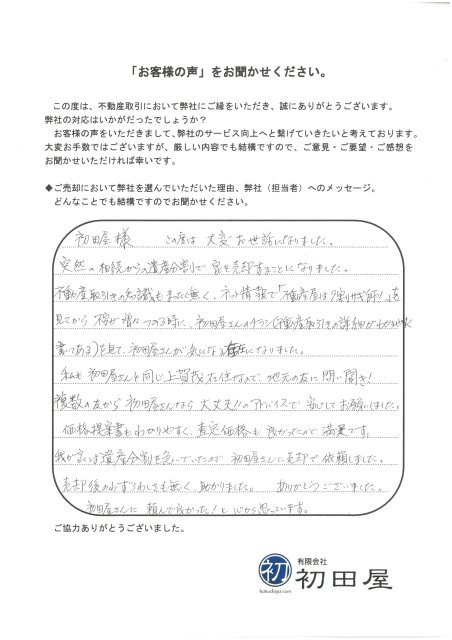 「お客様の声」をお聞かせください。
この度は、不動産取引において弊社にご縁をいただき、誠にありがとうございます。
弊社の対応はいかがだったでしょうか？
お客様の声をいただきまして、弊社のサービス向上へと繋げていきたいと考えております。
大変お手数ではございますが、厳しい内容でも結構ですので、ご意見・ご要望・ご感想を
お聞かせいただければ幸いです。
◆ご売却において弊社を選んでいただいた理由、弊社（担当者）へのメッセージ。
どんなことでも結構ですのでお聞かせください。
初田屋様 この度は大変お世話になりました。
突然の相続からの遺産分割で家を売却することになりました。
不動産取引きの知識もまったく無く、ネット情報で「不動産屋は
見てから不安が増々つのる時に、初田屋さんのチラシ(不動産取引きの詳細がわかり
書いてある)を見て、初田屋さんが気になる存在になりました。
私も初田屋さんと同じ上賀茂在住なので、地元の友に問い聞き!
複数の友から初田屋さんなら大丈夫!!のアドバイスで安心してお願いしました。
価格提案書もわかりやすく、査定価格も良かったので満足です。
遺産分割を急いでいたので初田屋さんに売却で依頼しました。
売却後のわずらわしさも無く助かりました。 ありがとうございました。
初田屋さんに頼んで良かった!と心から思っています。
ご協力ありがとうございました。
初
hatsudaya.com
有限会社
初田屋